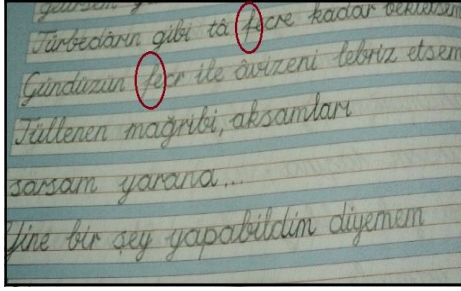 gelirsem
Türbedârın gibi tâ fecre kadar bekletsem
Gündüzün fecr ile âvizeni lebriz etsem
Tüllenen mağribi, akşamları
sarsam yarana...
Yine bir şey yapabildim diyemem